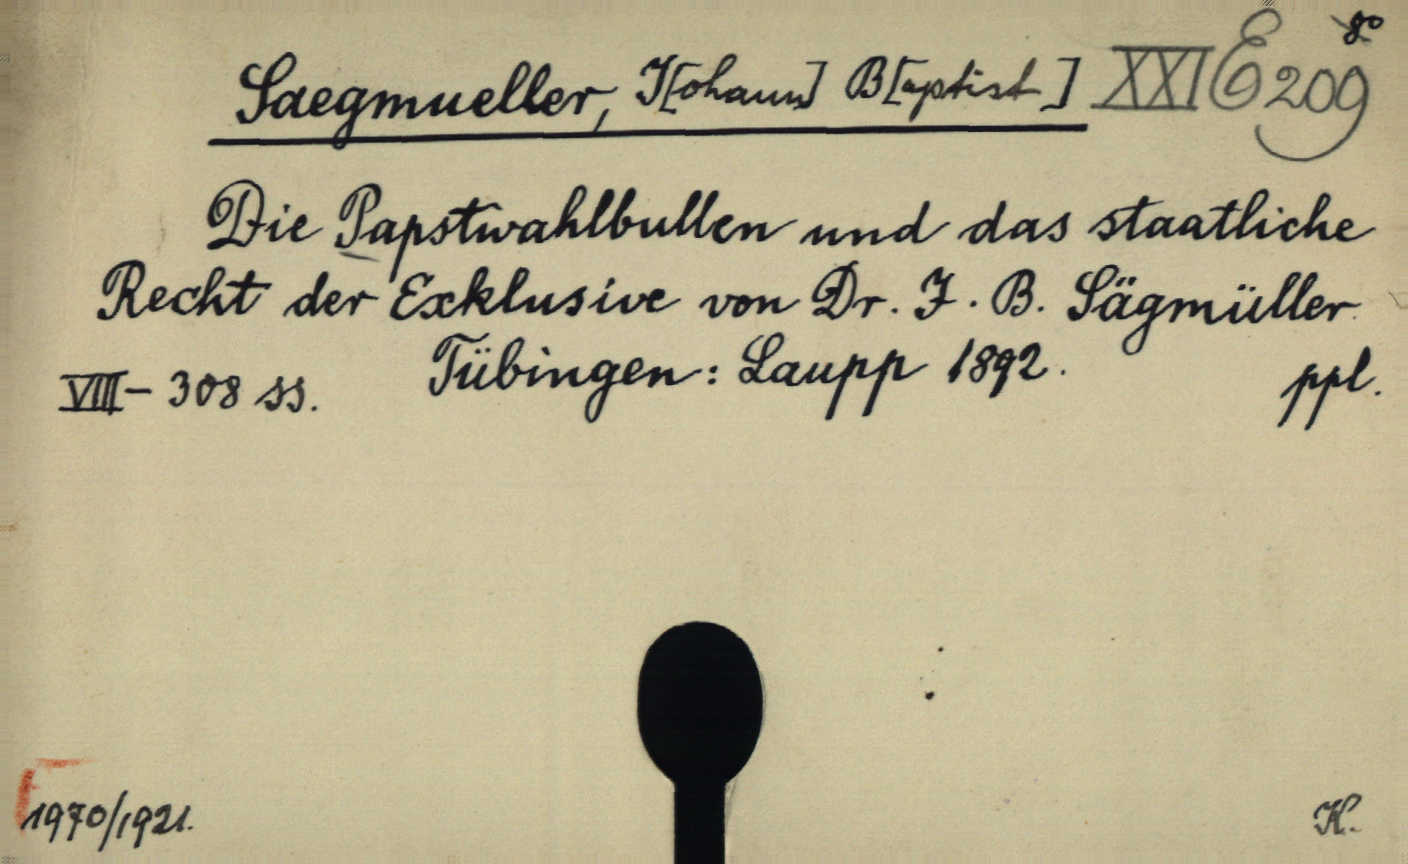 Saegmueller, J[ohann] B[aptist] XXI E 209 8º
Die Papstwahlbullen und das staatliche
Recht der Exklusive von Dr. J. B. Sägmüller
Tübingen: Laupp 1892.
VIII – 308 ss. ppl.
1970/1921. K.